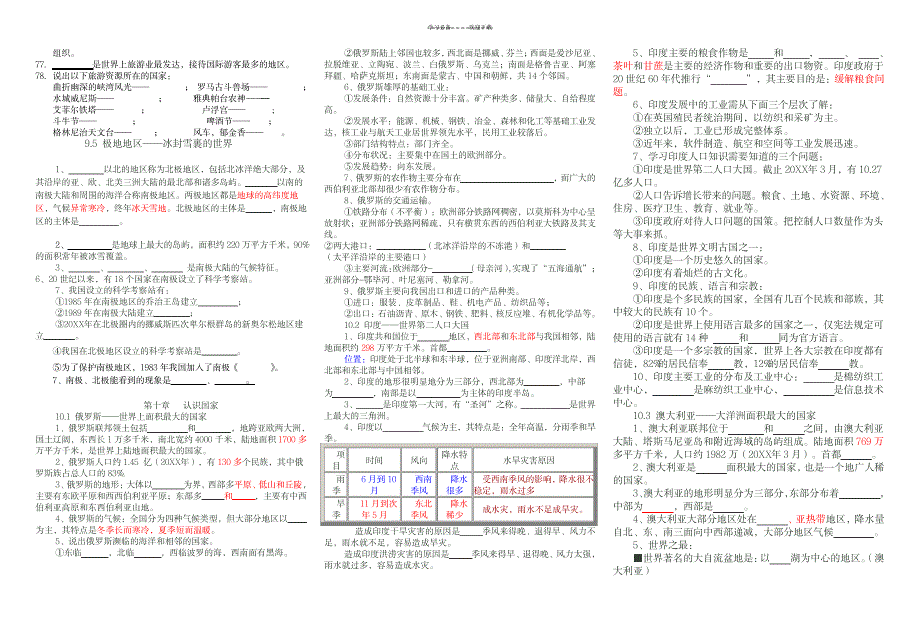 组织。
77. ________是世界上旅游业最发达，接待国际游客最多的地区。
78. 说出以下旅游资源所在的国家：
曲折幽深的峡湾风光——________； 罗马古斗兽场——________；
水城威尼斯——________； 雅典帕台农神庙——________
艾菲尔铁塔——________； 卢浮宫——________；
斗牛节——________； 唐人街——________；
格林尼治天文台——________； 风车、郁金香——________。
9.5 极地地区——冰封雪裹的世界
1、________以北的地区称为北极地区，包括北冰洋绝大部分，及
其沿岸的亚、欧、北美三洲大陆的最北部和诸多岛屿。________以南的
南极大陆和周围的海洋合称南极地区。两级地区都是地球的高纬度地
区，气候异常寒冷，终年冰天雪地。北极地区的主体是________，南极地
区的主体是________。
2、________是地球上最大的岛屿，面积约 220 万平方千米，90%
的面积常年被冰雪覆盖。
3、________、________、________ 是南极大陆的气候特征。
6、20 世纪以来，有 18 个国家在南极设立了科学考察站。
7、我国设立的科学考察站有：
①1985 年在南极地区的乔治王岛建立________；
②1989 年在南极大陆建立________；
③20XX年在北极圈内的挪威斯匹次卑尔根群岛的新奥尔松地区建
立________。
④我国在北极地区设立的科学考察站是________。
⑤为了保护南极地区，1983 年我国加入了南极《 》。
7、南极、北极能看到的现象是________、________。
第十章 认识国家
10.1 俄罗斯——世界上面积最大的国家
1、俄罗斯联邦领土包括________和________，地跨亚欧两大洲，
国土辽阔，东西长 1 万多千米，南北宽约 4000 千米，陆地面积 1700 多
万平方千米，是世界上陆地面积最大的国家。
2、俄罗斯人口约 1.45 亿（20XX年），有 130 多个民族，其中俄
罗斯族占总人口的 83%。
3、俄罗斯的地形：大体以________为界，西部多平原、低山和丘陵，
主要有东欧平原和西西伯利亚平原；东部多________和________，主要有中西
伯利亚高原和东西伯利亚山地。
4、俄罗斯的气候：全国分为四种气候类型，但大部分地区以________
为主，其特点是：冬季长而寒冷，夏季短而温暖。
5、说出俄罗斯濒临的海洋和相邻的国家。
①东临________，北临________，西临波罗的海，西南面有黑海。
②俄罗斯陆上邻国也较多，西北面是挪威、芬兰；西面是爱沙尼亚、
拉脱维亚、立陶宛、波兰、白俄罗斯、乌克兰；南面是格鲁吉亚、阿塞
拜疆、哈萨克斯坦；东南面是蒙古、中国和朝鲜，共 14 个邻国。
6、俄罗斯雄厚的基础工业：
①发展条件：自然资源十分丰富。矿产种类多、储量大、自给程度
高。
②发展水平：能源、机械、钢铁、冶金、森林和化工等基础工业发
达，核工业与航天工业居世界领先水平，民用工业较落后。
③部门结构特点：部门齐全。
④分布状况：主要集中在国土的欧洲部分。
⑤发展趋势：向东发展。
7、俄罗斯的农作物主要分布在________，而广大的
西伯利亚北部却很少有农作物分布。
8、俄罗斯的交通运输。
①铁路分布（不平衡）：欧洲部分铁路网稠密，以莫斯科为中心呈
放射状；亚洲部分铁路网稀疏，只有横贯东西的西伯利亚大铁路及其支
线。
②两大港口：________（北冰洋沿岸的不冻港）和________
（太平洋沿岸的主要港口）
③主要河流：欧洲部分-________（母亲河），实现了“五海通航”；
亚洲部分-鄂毕河、叶尼塞河、勒拿河。
9、俄罗斯主要向我国出口和进口的产品种类。
①进口：服装、皮革制品、鞋、机电产品、纺织品等；
②出口：石油沥青、原木、钢铁、化肥、肥料、核反应堆、有机化学品等。
10.2 印度——世界第二人口大国
1、印度共和国位于________地区，西北部和东北部与我国相邻，陆
地面积约 298 万平方千米。首都________。
位置：印度处于北半球和东半球，位于亚洲南部、印度洋北岸，西
北部和东北部与中国相邻。
2、印度的地形很明显地分为三部分，西北部为________，中部
为________，南部是以________为主体的印度半岛。
3、________是印度第一大河，有“圣河”之称。________是世界
上最大的三角洲。
4、印度以________气候为主，其特点是：全年高温，分雨季和旱
季。
项目 时间 风向 降水特点 水旱灾害原因
雨季 6 月到 10 月 西南季风 降水很多 受西南季风的影响，降水很不稳定，雨水过多
旱季 11 月到次年 5 月 东北季风 降水稀少 成水灾，雨水不足成旱灾。
造成印度干旱灾害的原因是________季风来得晚、退得早、风力不
足，雨水就不足，容易造成旱灾。
造成印度洪涝灾害的原因是________季风来得早、退得晚、风力太强，
雨水就过多，容易造成水灾。
5、印度主要的粮食作物是________和________，________、________、________、
茶叶和甘蔗是主要的经济作物和重要的出口物资。印度政府于
20 世纪 60 年代推行“________”，其主要目的是：缓解粮食问
题。
6、印度发展中的工业需从下面三个层次了解：
①在英国殖民者统治期间，以纺织和采矿为主。
②独立以后，工业已形成完整体系。
③近年来，软件制造、航空和空间等工业发展迅速。
7、学习印度人口知识需要知道的三个问题；
①印度是世界第二人口大国。截止 20XX年 3 月，有 10.27
亿多人口。
②人口告诉增长带来的问题。粮食、土地、水资源、环境、
住房、医疗卫生、教育、就业等。
③印度政府对待人口问题的国策。把控制人口数量作为头
等大事来抓。
8、印度是世界文明古国之一：
①印度是一个历史悠久的国家。
②印度有着灿烂的古文化。
9、印度的民族、语言和宗教：
①印度是个多民族的国家，全国有几百个民族和部族，其
中较大的民族有 10 个。
②印度是世界上使用语言最多的国家之一，仅宪法规定可
使用的语言就有 14 种 ________和________同为官方语言。
③印度是一个多宗教的国家，世界上各大宗教在印度都有
信徒，82%的居民信奉________教，12%的居民信奉________教。
10、印度主要工业的分布及工业中心：________是棉纺织工
业中心，________是麻纺织工业中心，________是信息技术
中心。
10.3 澳大利亚——大洋洲面积最大的国家
1、澳大利亚联邦位于________和________之间，由澳大利亚
大陆、塔斯马尼亚岛和附近海域的岛屿组成。陆地面积 769 万
多平方千米，人口约 1982 万（20XX年 3 月）。首都________。
2、澳大利亚是________面积最大的国家，也是一个发达国
家。
3、澳大利亚的地形明显分为三部分，东部分布着________，
中部为________，西部是________。
4、澳大利亚大部分地区处在________、亚热带地区，降水量
自北、东、南三面向中西部递减，大部分地区气候________。
5、世界之最：
■世界著名的大自流盆地是：以________湖为中心的地区。（澳
大利亚）